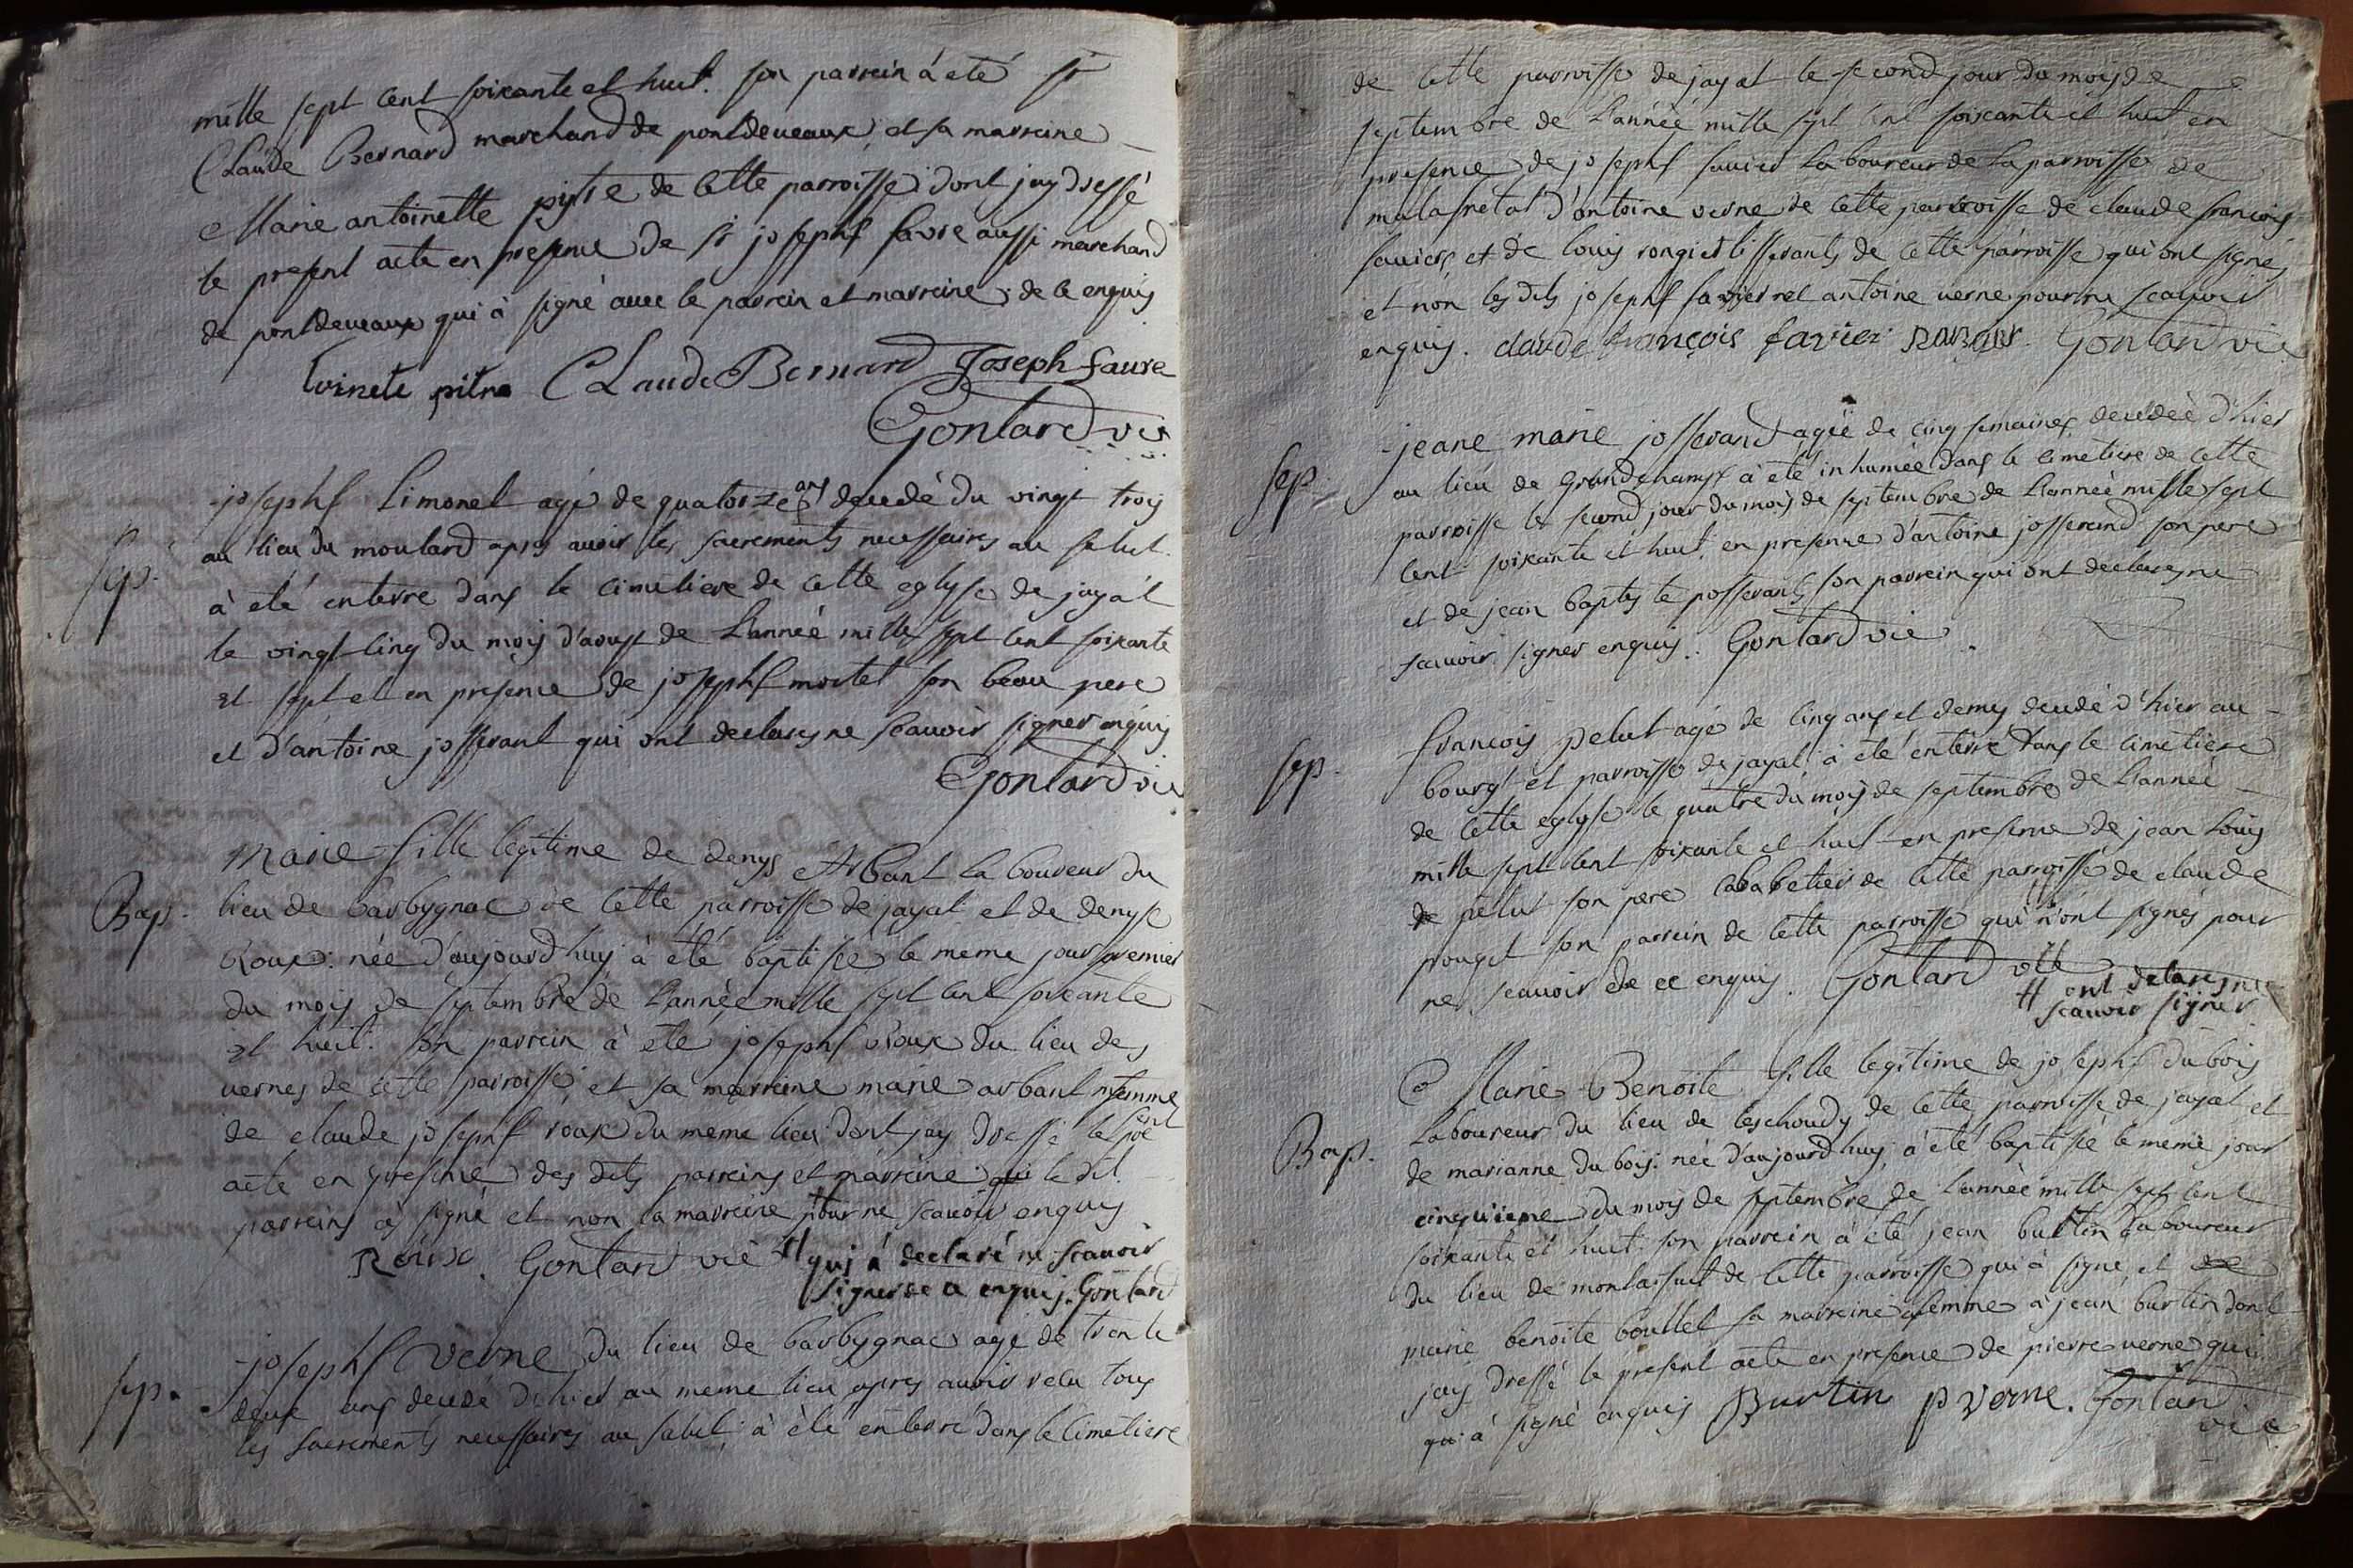 mille sept cent soixante et huit. son parrein à eté sr
Claude Bernard marchand de pontdeveaux, et sa marreine
Marie antoinette pistre de cette parroisse dont jay dressé
le present acte en presence de sr josephf favre aussi marchand
de pontdeveaux qui à signé avec le parrein et marreine de ce enquis
toinete pitre Claude Bernard Joseph favre
Gontard vic
Sep.
josephf Limonet agé de quatorze ans decedé du vingt trois
au lieu du moulard apres avoir les sacrements necessaires au salut
à eté enterre dans le cimetiere de cette eglyse de jayat
le vingt cinq du mois d'aoust de L'année mille sept cent soixante
et sept et en presence de josephf mortel son beau pere
et d'antoine josserant qui ont declarés ne scavoir signer enquis
Gontard vic
Bap.
Marie fille legitime de denys Arbant laboureur du
lieu de barbygnac de cette parroisse de jayat et de denyse
Roux: née d'aujourd huy à eté baptisée le meme jour premier
du mois de septembre de L'année mille sept cent soixante
et huit. son parrein à eté josephf Roux du lieu des
vernes de cette parroisse, et sa marreine marie arbant femme
de claude josephf roux du meme lieu dont jay dressé le pnt
acte en presence des dits parreins et marreine le dit
parreins à signé et non la marreine pour ne scavoir enquis
Roux. Gontard vic # qui à declaré ne scavoir
signer de ce enquis. Gontard
sep.
josephf Verne du lieu de barbygnac agé de trente
deux ans decedé d'hier au meme lieu apres avoir recu tous
les sacrements necessaires au salut, à èté enterré dans le cimetiere
de cette parroisse de jayat le second jour du mois de
septembre de L'année mille sept cent soixante et huit en
presence de josephf favier Laboureur de La parroisse de
malafretat d'antoine verne de cette parroisse de claude francois
favier et de louis rongier tisserants de cette parroisse qui ont signés
et non les dits josephf favier et antoine verne pour ne scavoir
enquis. claude françois favier Gontard vic
Sep.
jeane marie josserand agée de cinq semaines decedée d'hier
au lieu de Grandchamps à eté inhumée dans le cimetiere de cette
parroisse le second jour du mois de septembre de L'année mille sept
cent soixante et huit en presence d'antoine josserand son pere
et de jean baptiste josserants son parrein qui ont declarés ne
scavoir signer enquis. Gontard vic
sep.
francois pelut agé de cinq ans et demy decedé d'hier au
bourg et parroisse de jayat à eté enterré dans le cimetiere
de cette eglyse le quatre du mois de septembre de L'année
mille sept cent soixante et huit en presence de jean Louis
pelut son pere cabaretier de cette parroisse de claude
pouget son parrein de cette parroisse qui n'ont signés pour
ne scavoir de ce enquis. Gontard vic
# ont declarés ne
scavoir signer
Bap.
Marie Benoite fille legitime de josephf dubois
Laboureur du lieu de leschoudy de cette parroisse de jayat et
de marianne du bois: née d'aujourd huy, à èté baptisée le meme jour
cinquieme du mois de septembre de L'année mille sept cent
soixante et huit. son parrein à èté jean burtin laboureur
du lieu de de cette parroisse qui à signé et
marie benoite boullet sa marreine femme à jean burtin dont
jay dressé le present acte en presence de pierre verne qui
qui à signé enquis Burtin p verne. Gontard
vic